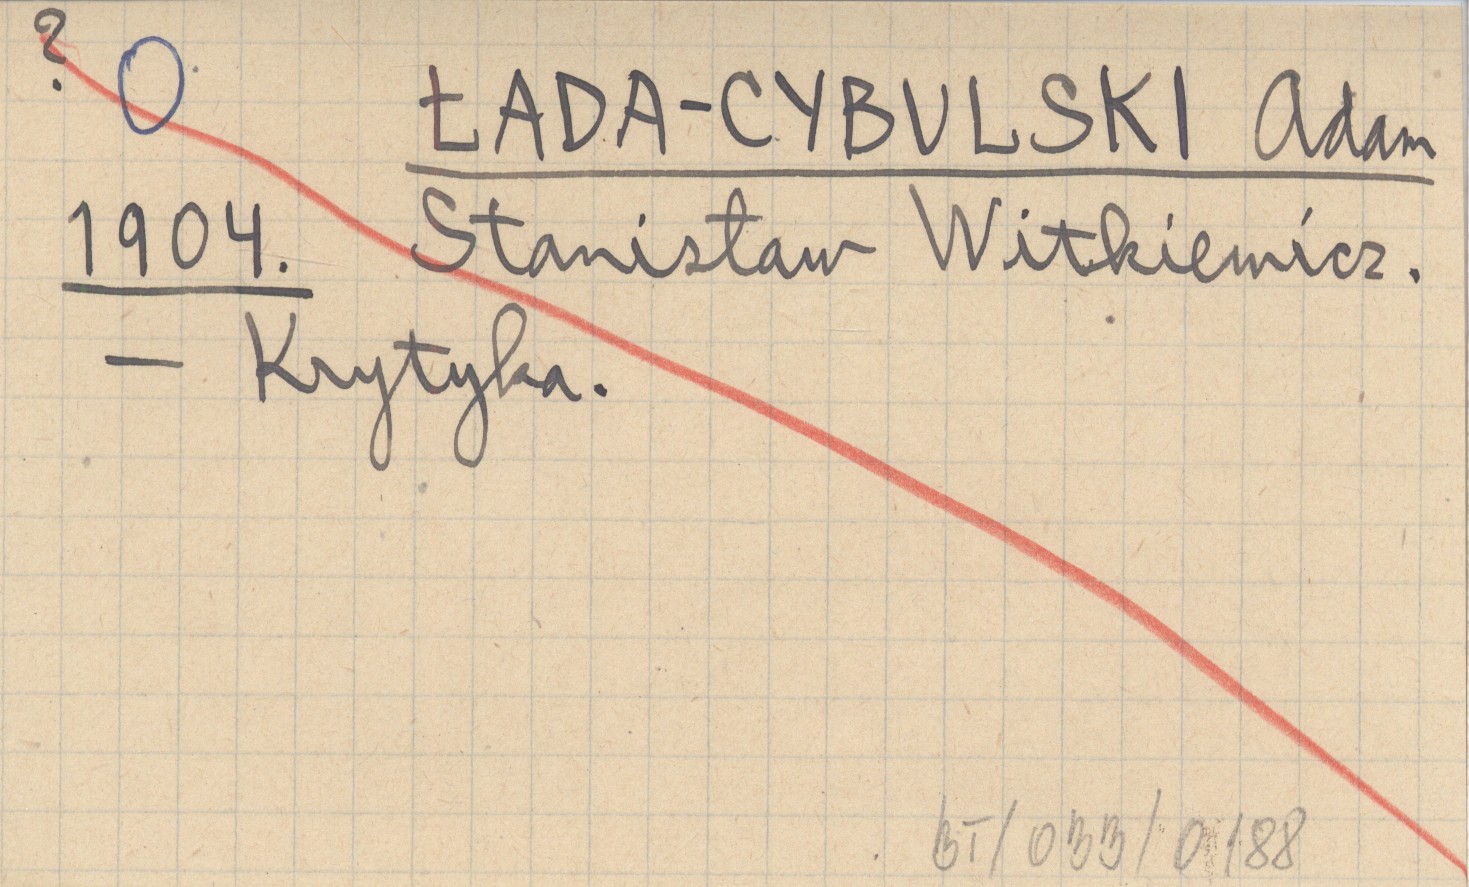 ?
O
ŁADA-CYBULSKI Adam
1904. Stanisław Witkiewicz.
— Krytyka.
BT/033/0188